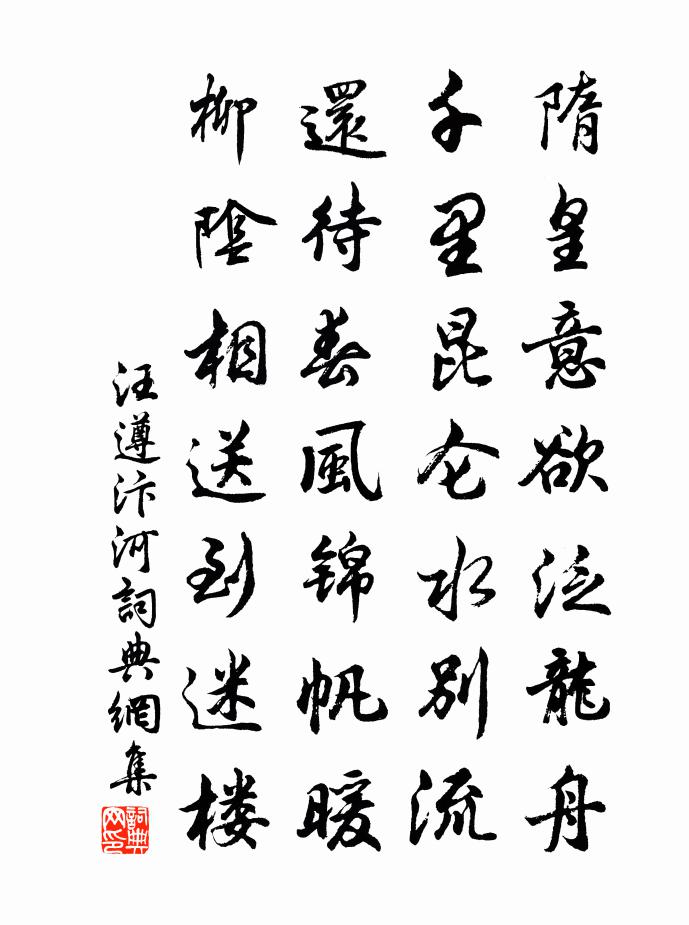 隋皇意欲泛龍舟
千里昆仑水別流
還待春風锦帆暖
柳陰相送到迷楼
汪遵汴河詞典網集
詞典
网印